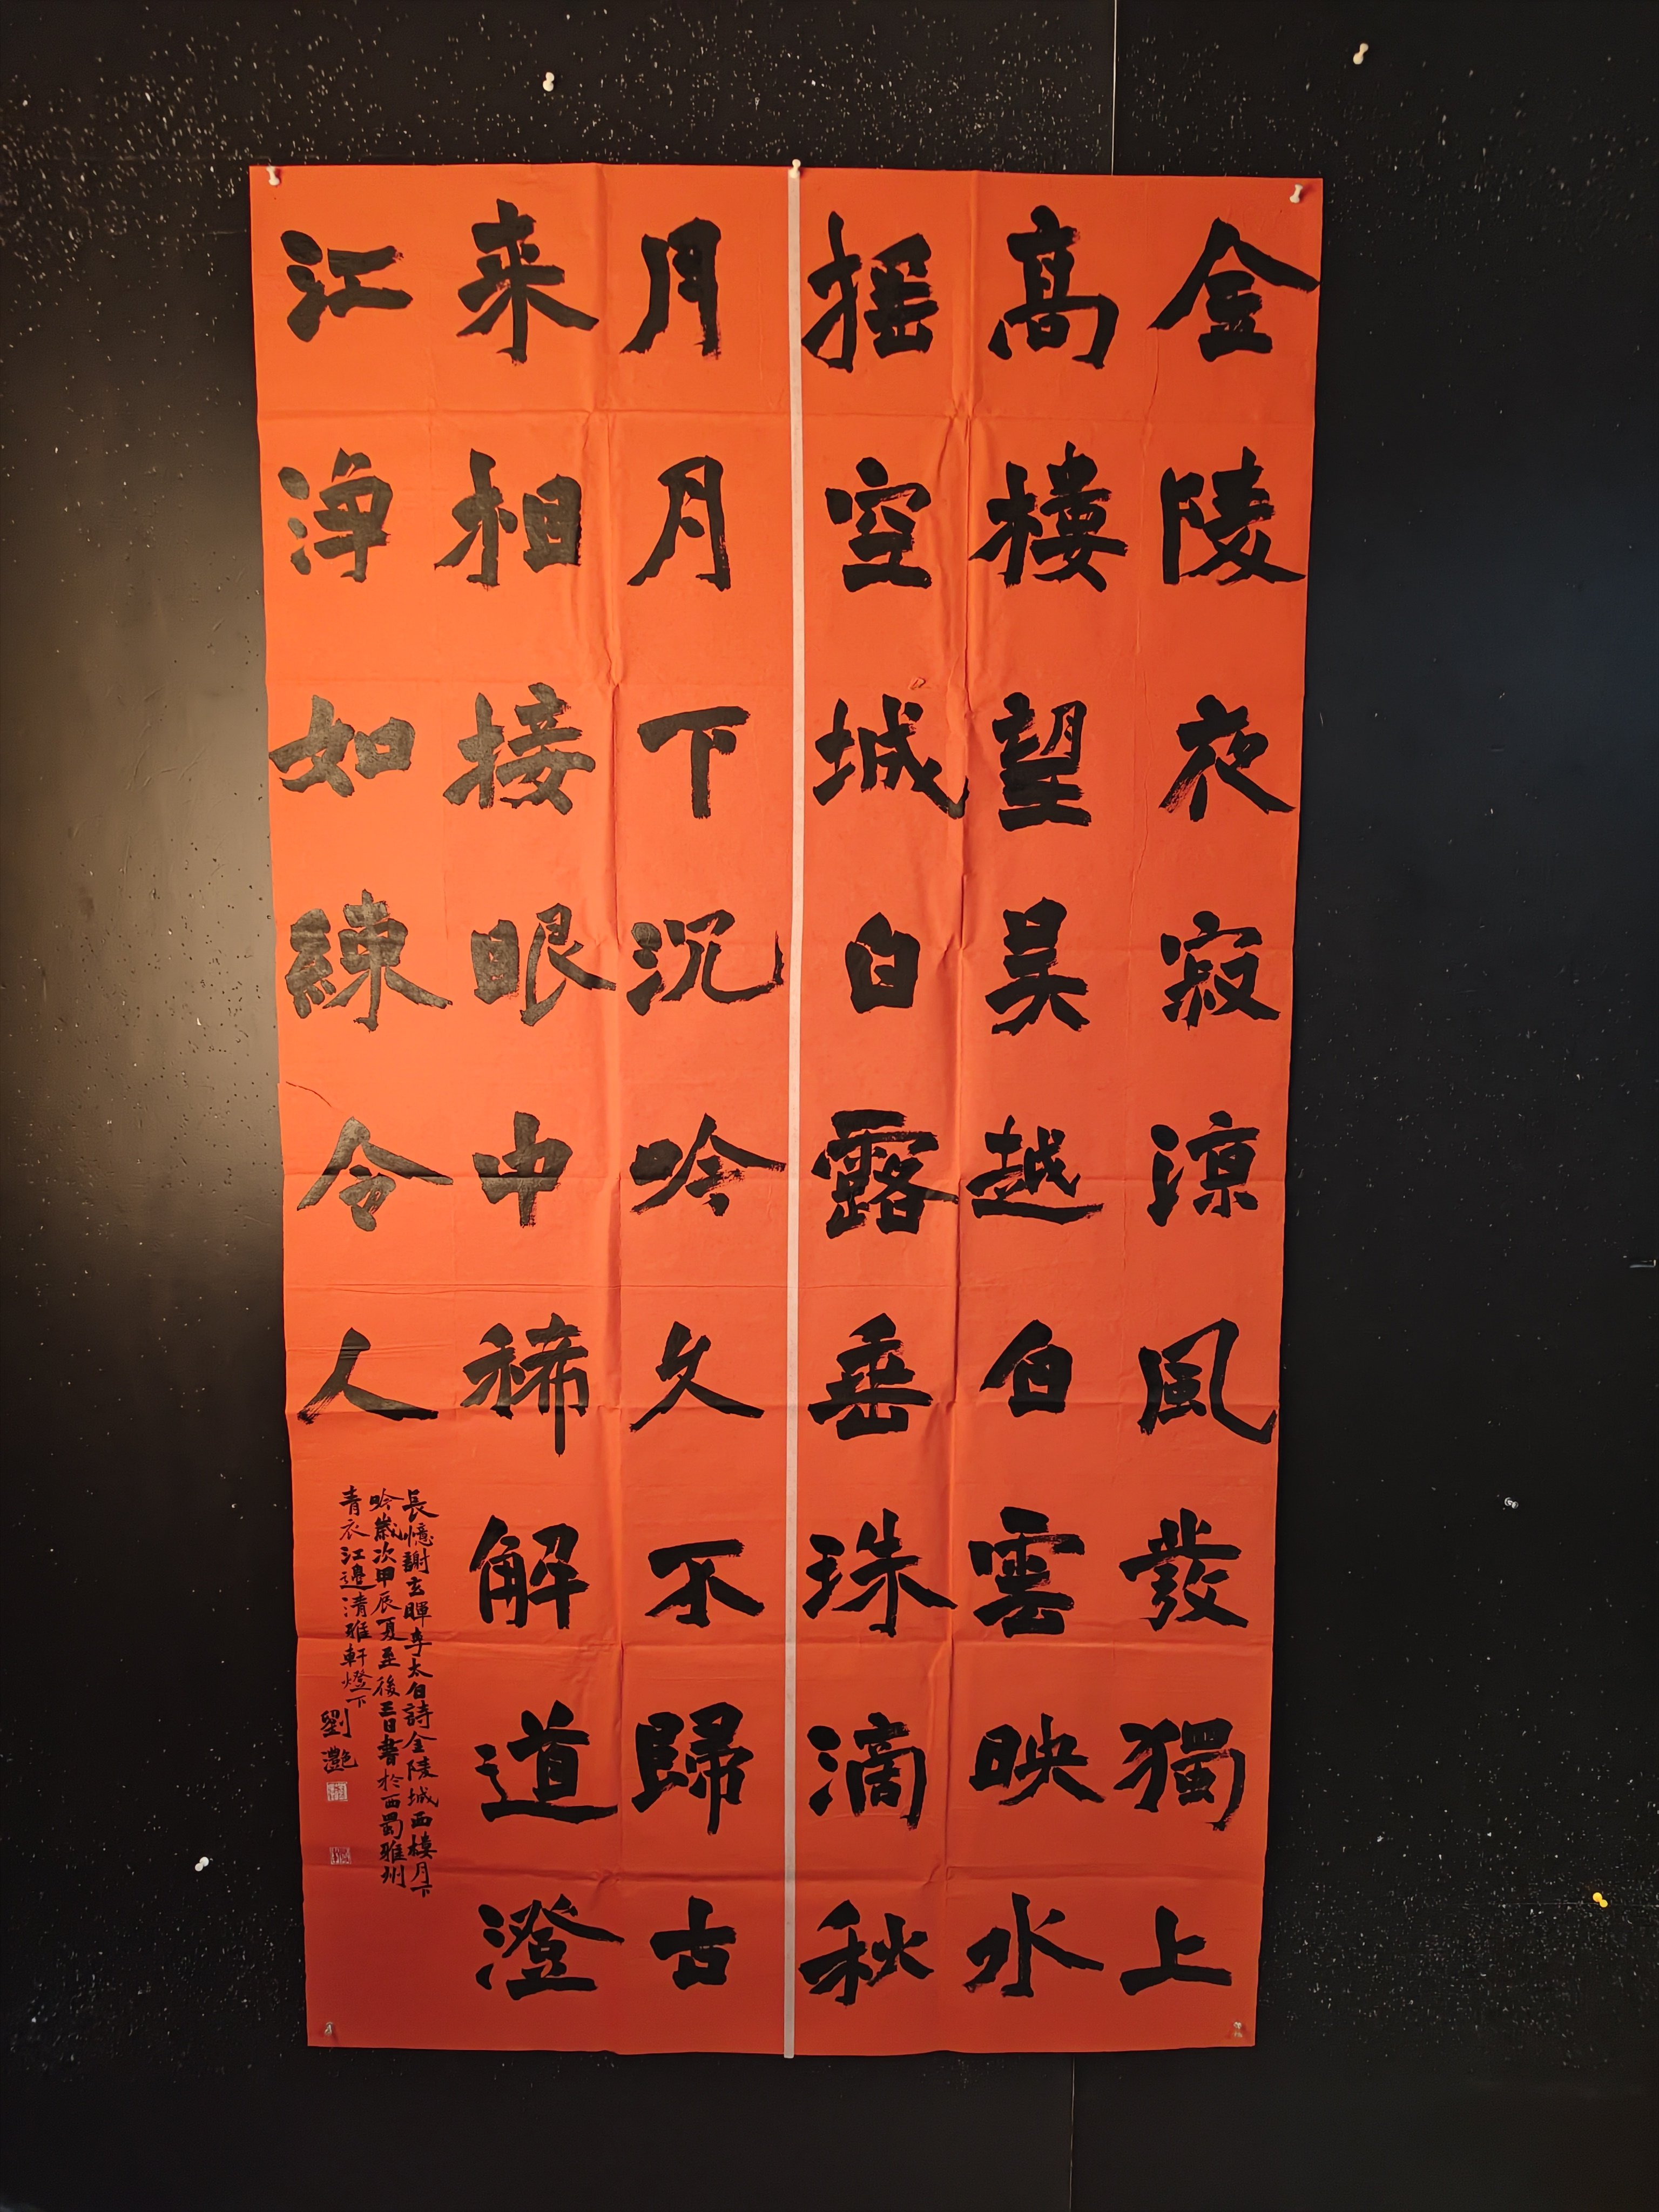 金陵夜寂涼風發獨上
高樓望吴越白雲映水
摇空城白露垂珠滴秋
月月下沉吟久不歸古
来相接眼中稀解道澄
江淨如練令人
長憶謝玄暉李太白詩金陵城西樓月下
吟歲次甲辰夏至後三日書於西蜀雅州
青衣江邊清雅軒燈下
劉灔